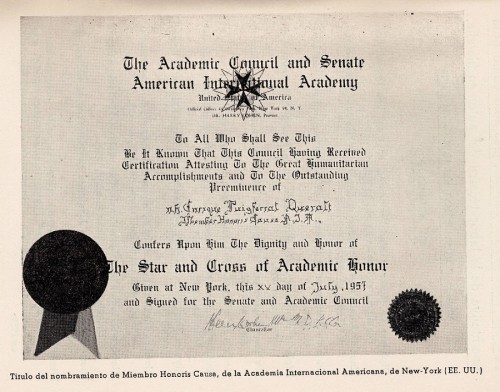 The Academic Council and Senate
American International Academy
United States of America
To All Who Shall See This
Be It Known That This Council Having Received
Certification Attesting To The Great Humanitarian
Accomplishments and To The Outstanding
Preeminence of
Enrique Puigferrat Queralt
Member Honoris Causa A.I.A.
Confers Upon Him The Dignity and Honor of
The Star and Cross of Academic Honor
Given at New York, this XV day of July, 1957
and Signed for the Senate and Academic Council
Chancellor
Título del nombramiento de Miembro Honoris Causa, de la Academia Internacional Americana, de New-York (EE. UU.)